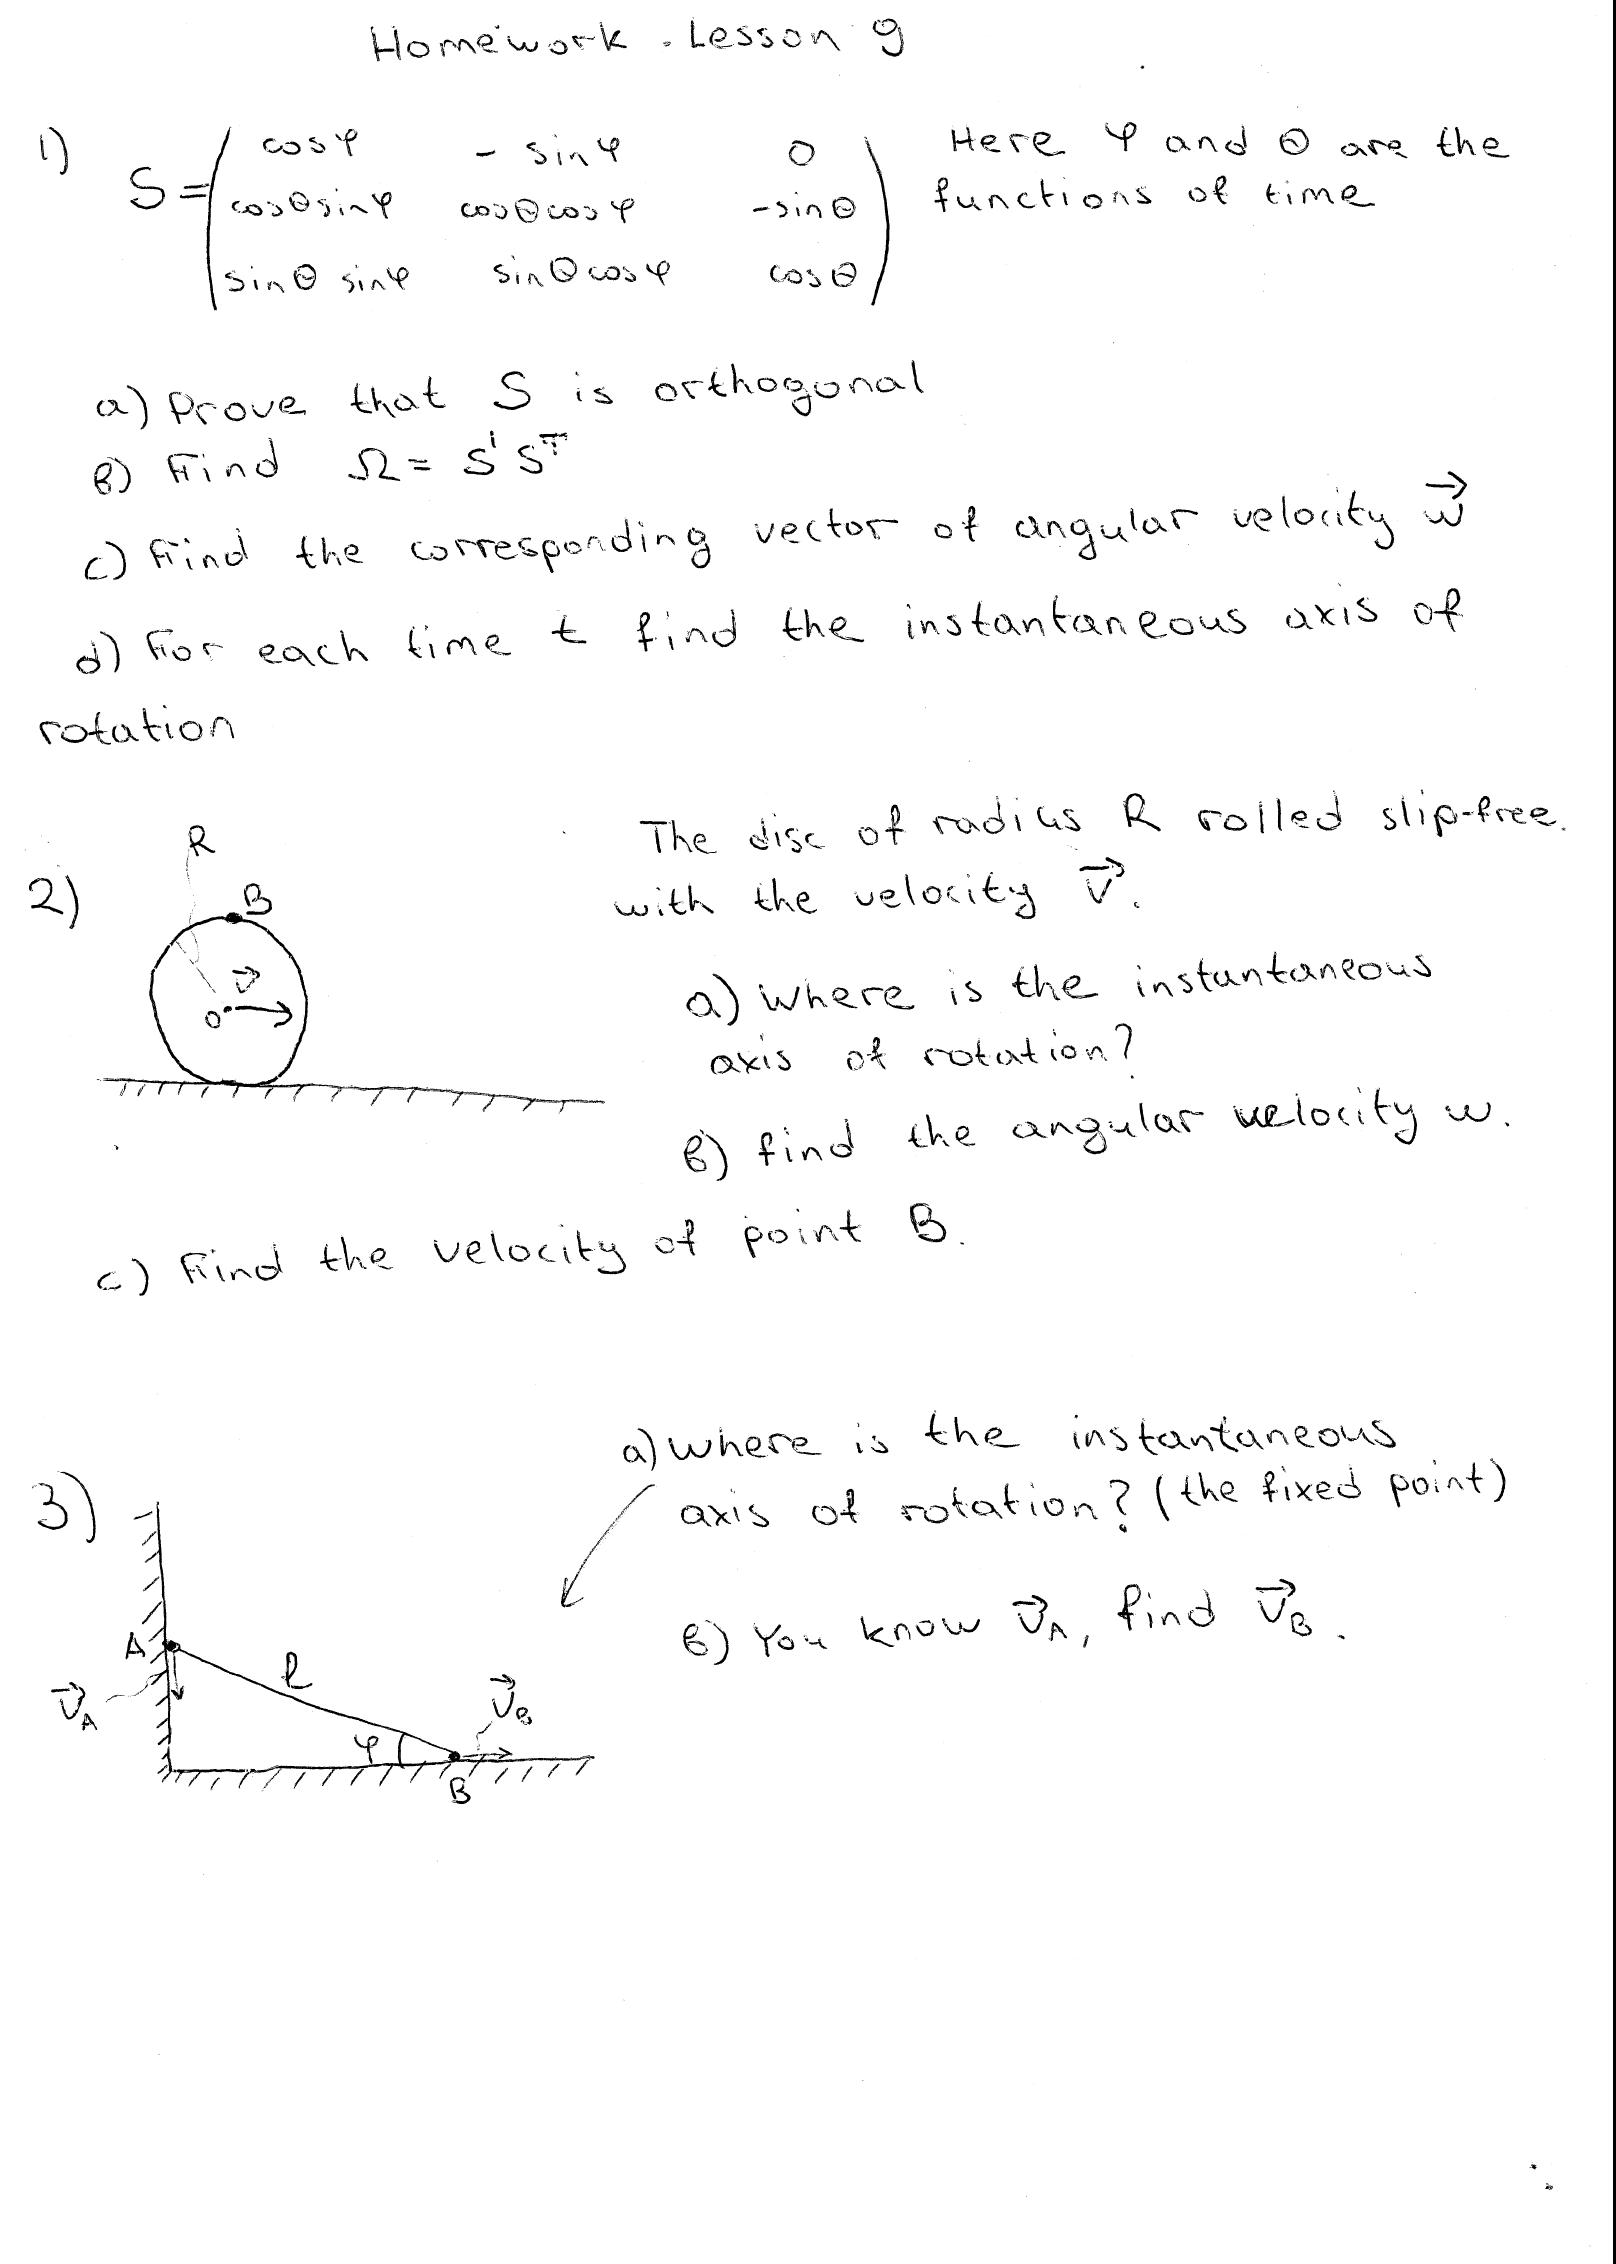 Homework. Lesson 9
1) S = ( cosφ - sinφ 0 Here φ and θ are the
cosθsinφ cosθcosφ -sinθ functions of time
sinθ sinφ sinθcosφ cosθ )
a) Prove that S is orthogonal
в) Find Ω = S' S^T
c) Find the corresponding vector of angular velocity w⃗
d) For each time t find the instantaneous axis of
rotation
2) R
B
v⃗
o
The disc of radius R rolled slip-free.
with the velocity v⃗.
a) Where is the instantaneous
axis of rotation?
в) find the angular velocity w.
c) Find the velocity of point B.
3) a) Where is the instantaneous
axis of rotation? (the fixed point)
в) You know v⃗_A, find v⃗_B.
A
l
v⃗_A
v⃗_B
φ
B